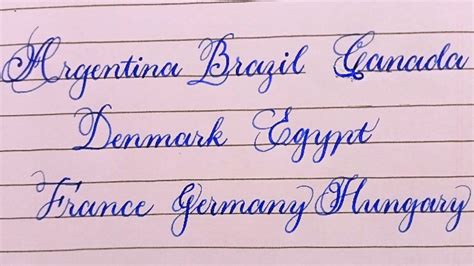 Argentina Brazil Canada
Denmark Egypt
France Germany Hungary